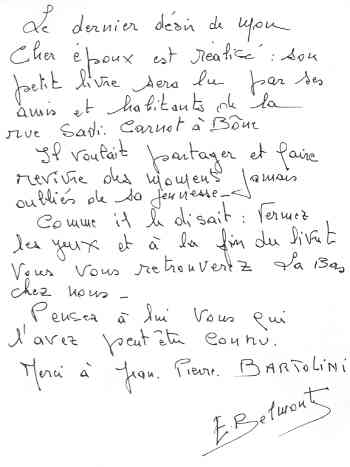 Le dernier désir de mon
Cher époux est réalisé : son
petit livre sera lu par ses
amis et habitants de la
rue Sadi. Carnot à Bône
Il voulait partager et faire
revivre des moments jamais
oubliés de sa jeunesse -
Comme il le disait : Fermez
les yeux et à la fin du livret
Vous vous retrouverez La Bas
chez nous -
Pensez à lui Vous qui
l'avez peut être connu.
Merci à Jean. Pierre. BARTOLINI
E. Belmonte